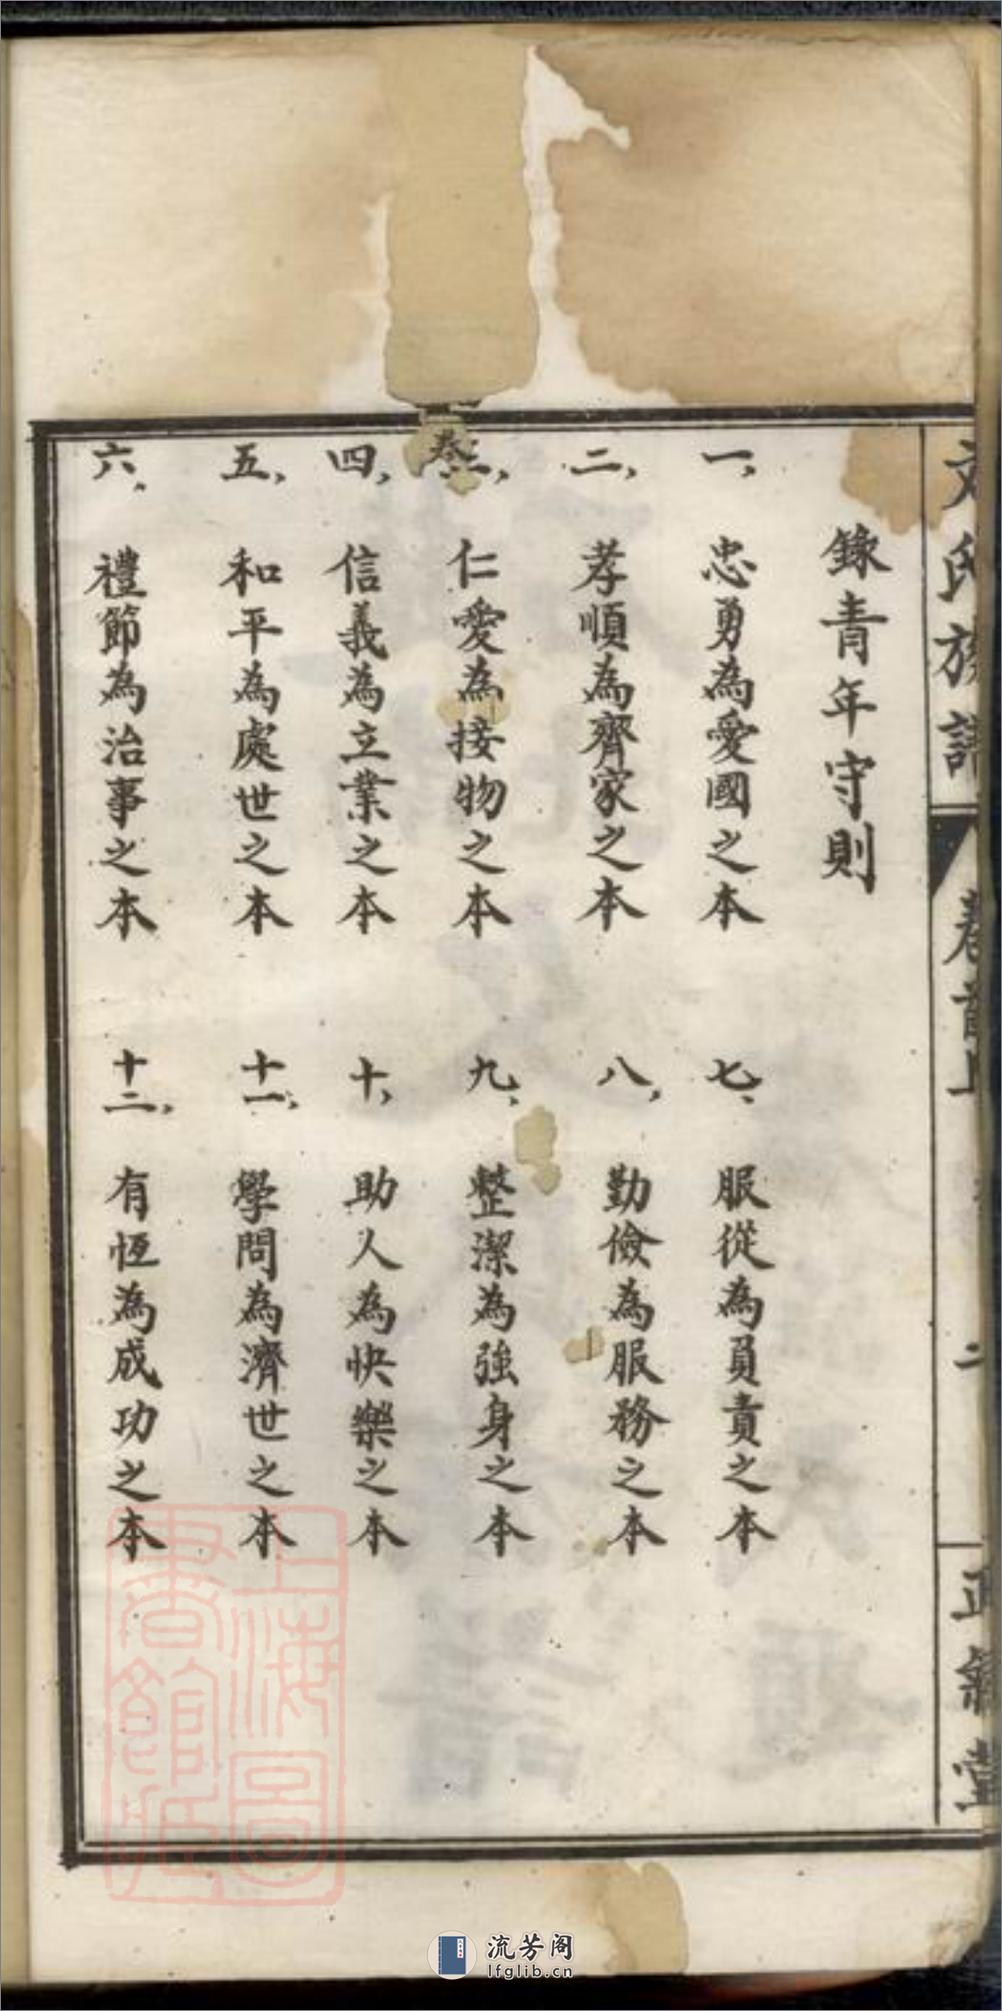 文氏族譜
卷首上
二
正氣堂
錄青年守則
一、忠勇為愛國之本
二、孝順為齊家之本
三、仁愛為接物之本
四、信義為立業之本
五、和平為處世之本
六、禮節為治事之本
七、服從為負責之本
八、勤儉為服務之本
九、整潔為強身之本
十、助人為快樂之本
十一、學問為濟世之本
十二、有恆為成功之本
上海圖書館藏
流芳阁
lfglib.cn